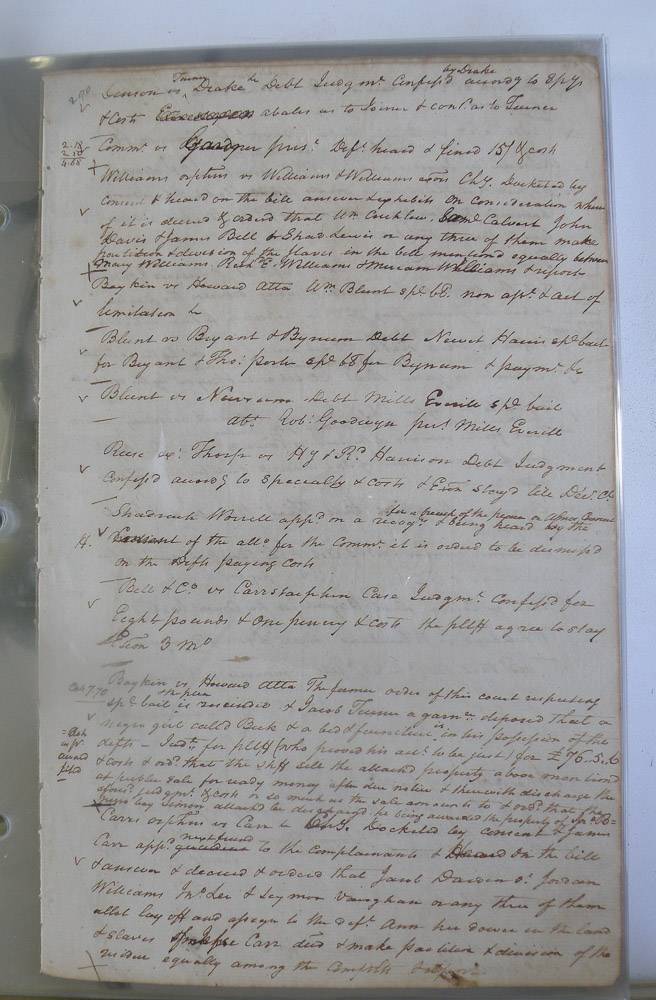 Denson vs Turner Drake &c Debt Judgmt. Confess'd by Drake accordg to Specys
& Costs abates as to Joiner & contd. as to Turner
2.18
2.10
4.68
Commr. vs Gardner prest. Deft. heard & fined 15/ & cost
Williams orphns vs Williams & Williams Chy. Docketed by
consent & heard on the bill answer & exhibits on consideration where
of it is decreed & orderd that Wm. Saml. Calvert John
Davis & James Bell Shad. Lewis or any three of them make
partition & division of the slaves in the bill mentioned equally between
Mary Williams, E. Williams & Miriam Williams & report
Boykin vs Howard Atta Wm. Blunt spl. bl. non apt. & act of
limitation &c
Blunt vs Bryant & Bynum Debt Newit Harris spl. bail
for Bryant & Tho: Porter spl. bl for Bynum & paymt. &c
Blunt vs Newsum Debt Mills Everitt spl. bail
abt. Rob: Goodwyn per Mills Everitt
Reese exr. Thorp vs Hy & Rd. Harrison Debt Judgment
Confess'd accordg to specialty & costs & Exon stay'd till Decr. Ct.
for a breach of the peace on
Shadrack Worrell appd. on a recogce. & being heard by the
H. of the atto. for the Commr. it is ordered to be dismiss'd
on the Defts paying costs
Bell & Co. vs Carrstarphen Case Judgmt. confess'd for
Eight pounds & one penny & costs the pltff agree to stay
Exon 3 mo
Boykin vs Howard Atta The former order of this court respecting
spl. bail is rescinded & Jacob Turner a garne. deposed that a
negro girl called Beck & a bed & furniture is in his possession of the
defts - Judt. for pltff (who proved his act. to be just) for £76.5.6
& costs & ord. that the shff sell the attachd property above mentiond
at public sale for ready money after due notice & therewith discharge the
aforesd. judgmt. & costs or so much as the sale amounts to & ord. that the
negro boy Simon attachd be discharged he being awarded the property of
Carrs orphns vs Carr &c Chy. Docketed by consent & James
Carr appd. next friend to the complainants & Heard on the bill
& answer & decreed & ordered that Jacob Darden Sr. Jordan
Williams Jno. Lee & Seymor Vaughan or any three of them
allot lay off and assign to the deft. Ann her dower in the land
& slaves of Carr decd & make partition & division of the
residue equally among the complts & report